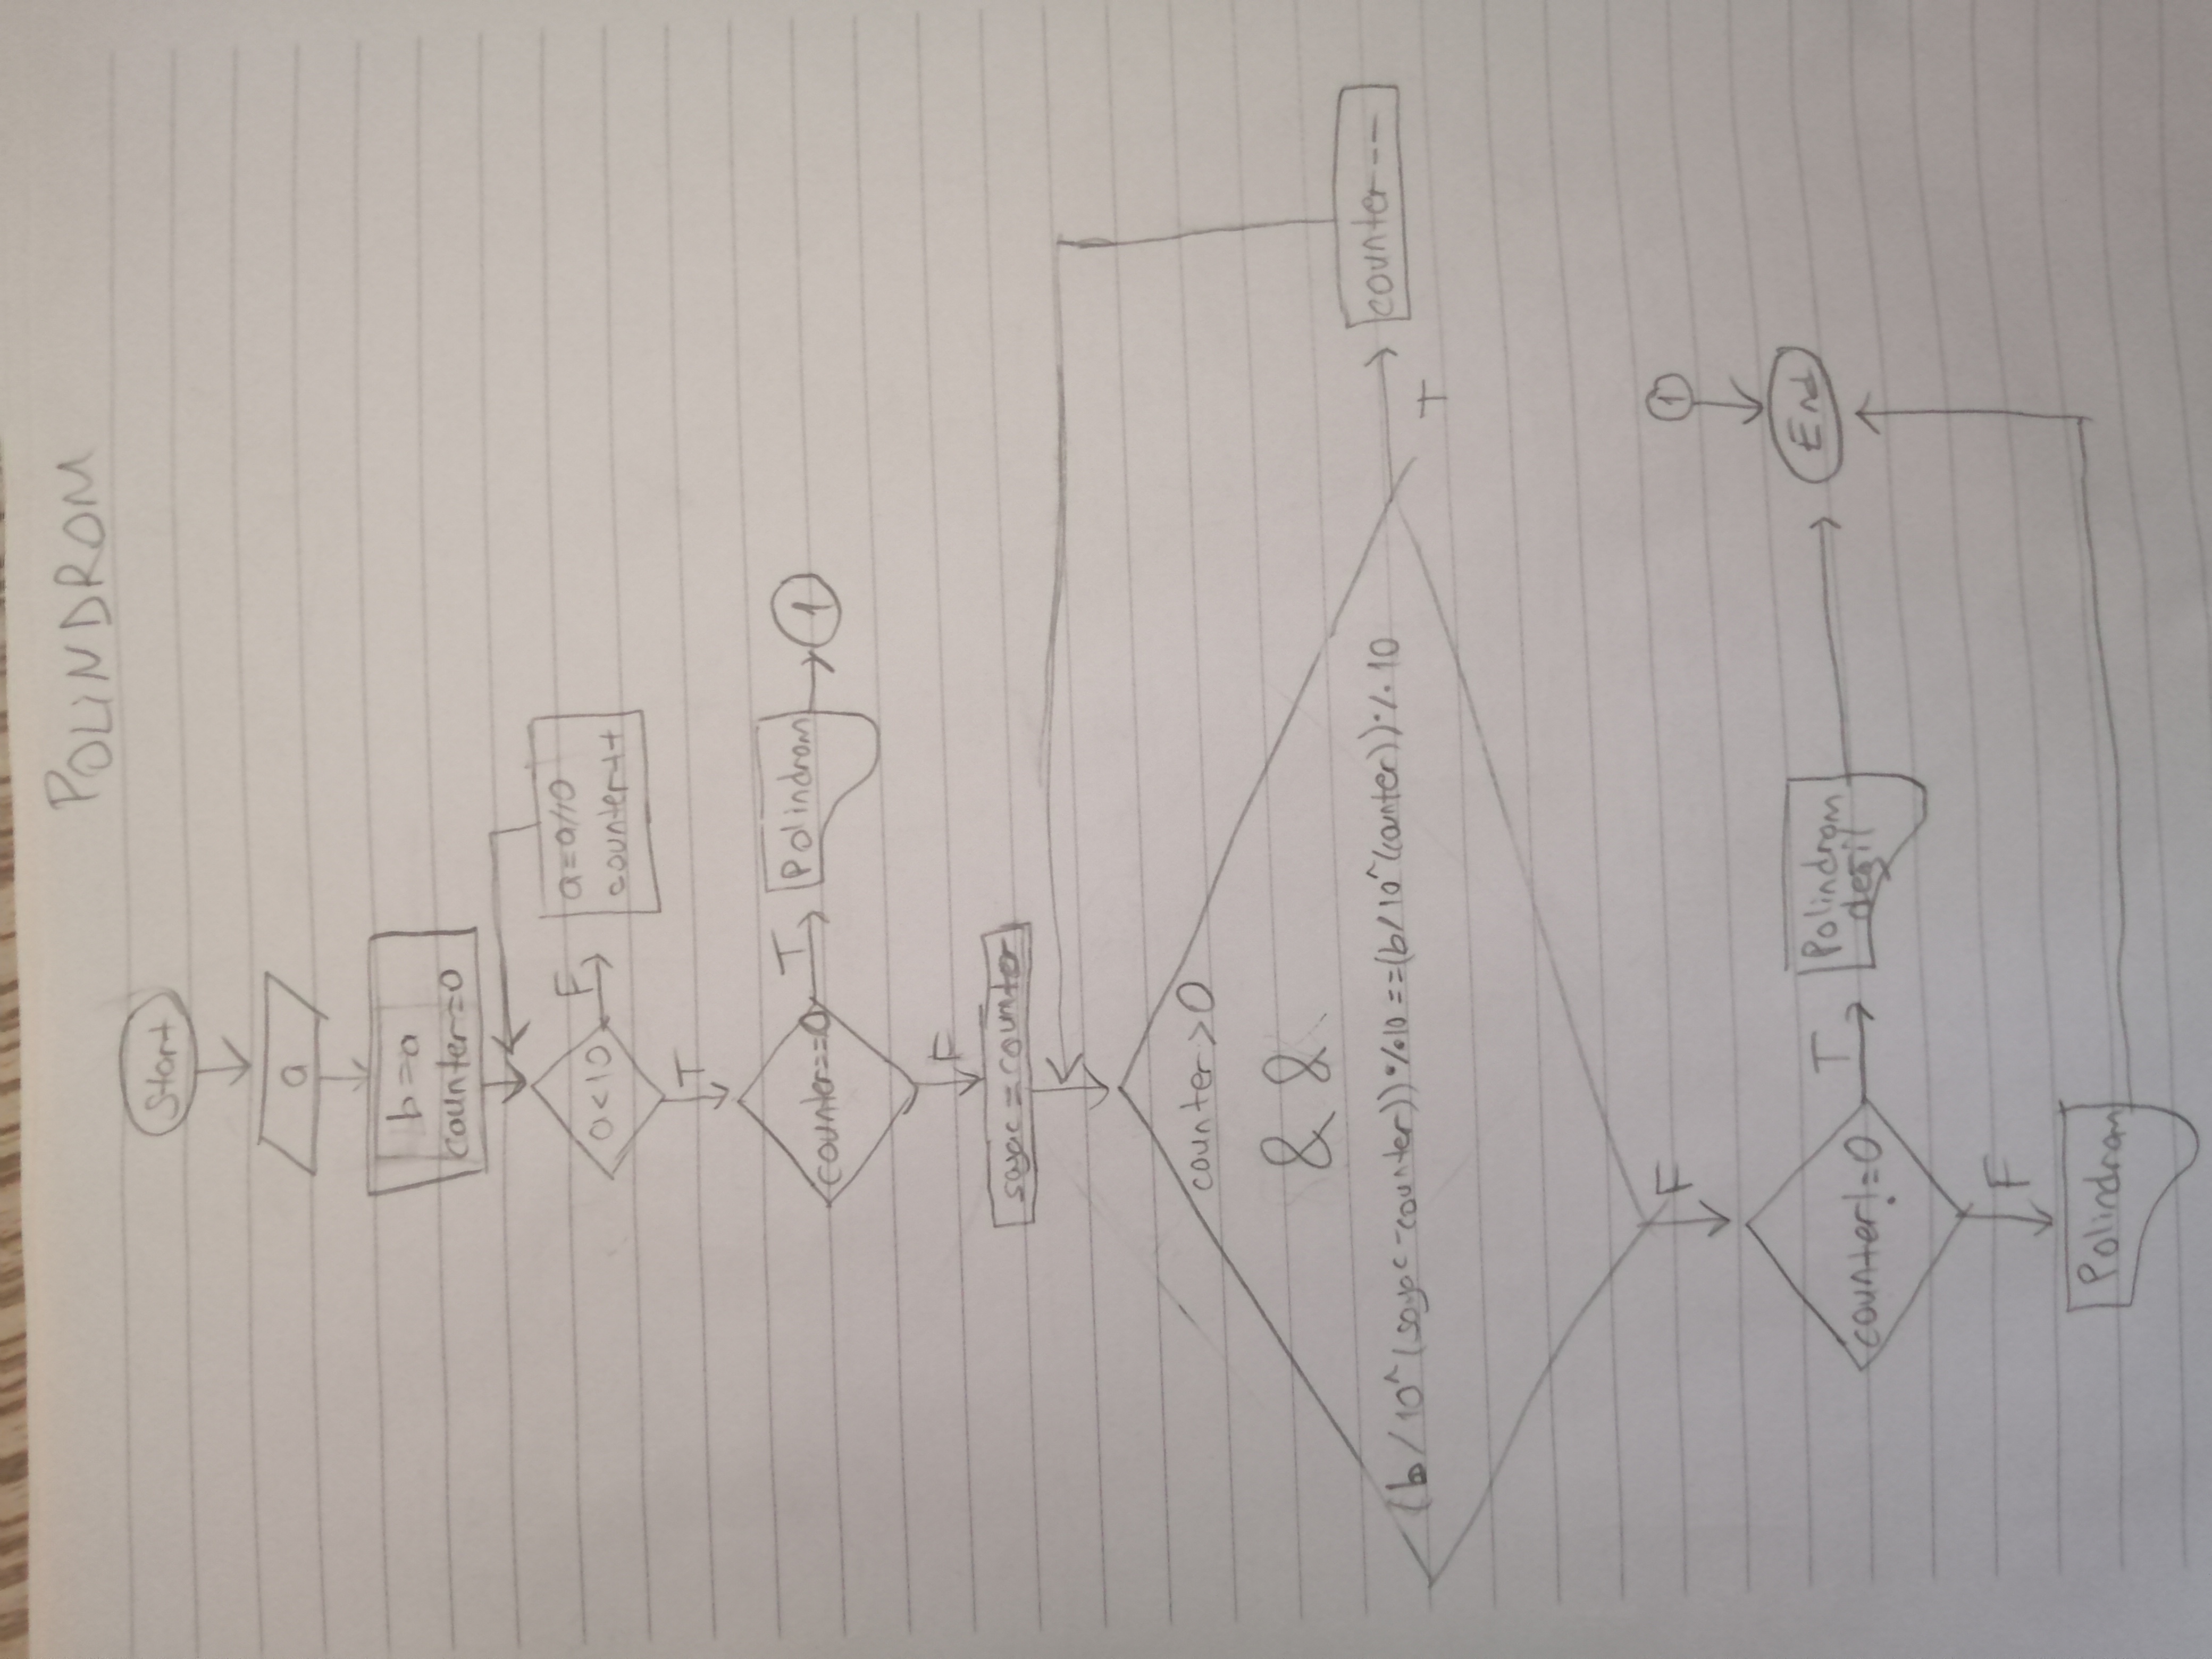 POLINDROM
Start
a
b=a
counter=0
a<10
F
a=a/10
counter++
T
counter==0
T
Polindrom
1
F
sayac=counter
counter>0
&&
(b/10^(sayac-counter))%10==(b/10^(counter))%10
T
counter--
F
counter!=0
T
Polindrom
değil
1
End
F
Polindrom